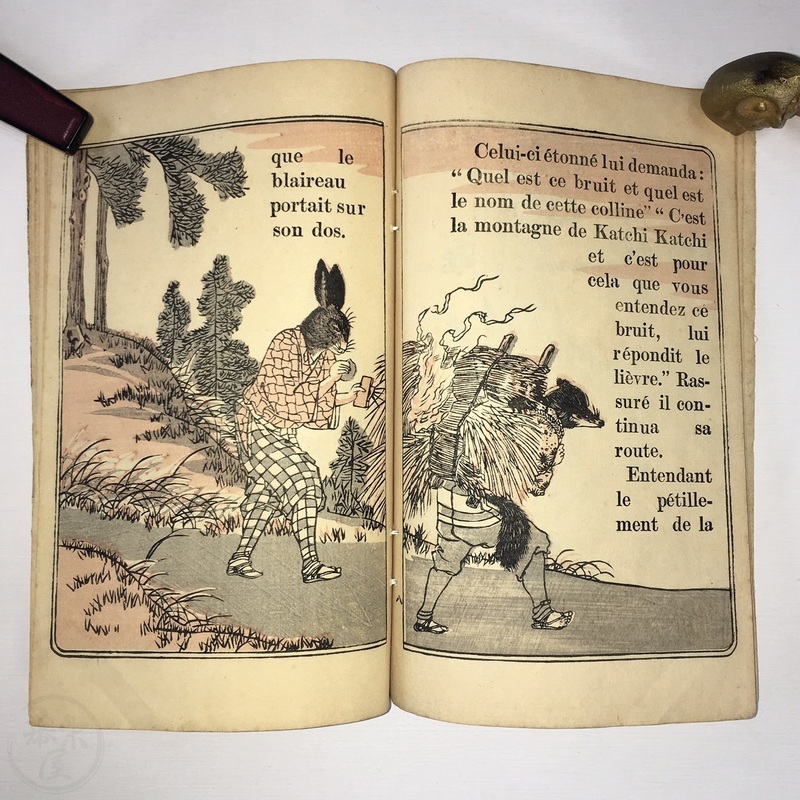 que le
blaireau
portait sur
son dos.
Celui-ci étonné lui demanda:
“Quel est ce bruit et quel est
le nom de cette colline” “C'est
la montagne de Katchi Katchi
et c'est pour
cela que vous
entendez ce
bruit, lui
répondit le
lièvre.” Ras-
suré il con-
tinua sa
route.
Entendant
le pétille-
ment de la